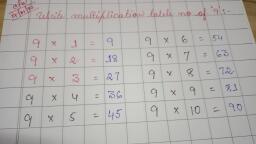 Write multiplication table no of '9':-
9 × 1 = 9
9 × 2 = 18
9 × 3 = 27
9 × 4 = 36
9 × 5 = 45
9 × 6 = 54
9 × 7 = 63
9 × 8 = 72
9 × 9 = 81
9 × 10 = 90